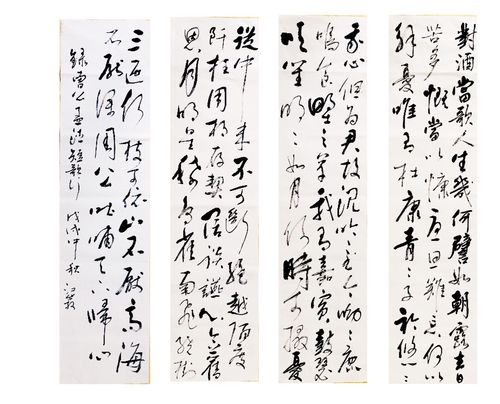 對酒當歌人生幾何譬如朝露去日
苦多慨當以慷憂思難忘何以
解憂唯有杜康青〻子衿悠〻
我心但為君故沉吟至今呦〻鹿
鳴食野之苹我有嘉賓鼓瑟
吹笙明〻如月何時可掇憂
從中來不可斷絕越陌度
阡枉用相存契闊談讌心念舊
恩月明星稀烏鵲南飛繞樹
三匝何枝可依山不厭高海
不厭深周公吐哺天下歸心
錄曹公孟德短歌行 戊戌中秋